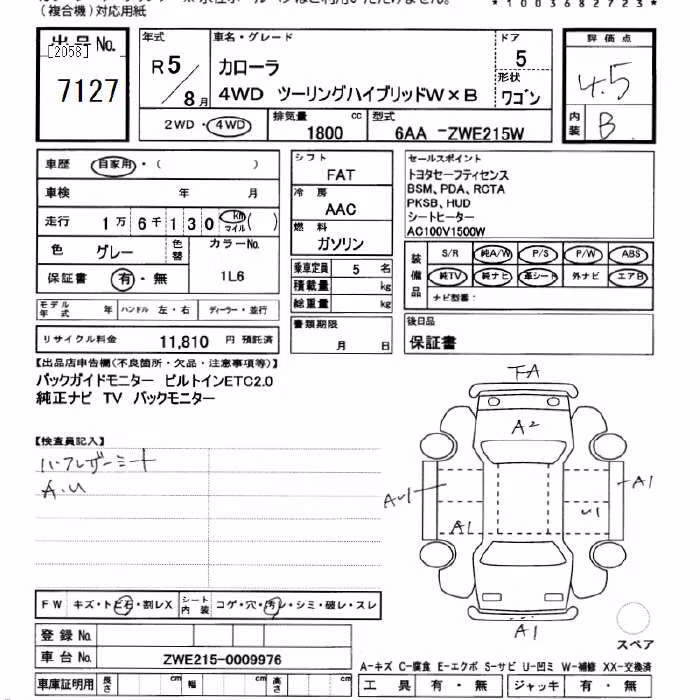 (複合機)対応用紙
*1003682723*
出品No.
[2058]
7127
年式
R5/8月
車名・グレード
カローラ
4WD ツーリングハイブリッドW×B
ドア
5
形状
ワゴン
評価点
4.5
内装
B
2WD・4WD
排気量
1800 cc
型式
6AA -ZWE215W
車歴 自家用・( )
車検 年 月
走行 1万6千130 km マイル ( )
色 グレー 色替 カラーNo.
保証書 有・無 1L6
モデル年式 年 ハンドル 左・右 ディーラー・並行
リサイクル料金 11,810 円 預託済
シフト
FAT
冷房
AAC
燃料
ガソリン
乗車定員 5 名
積載量 kg
総重量 kg
書類期限
月 日
セールスポイント
トヨタセーフティセンス
BSM、PDA、RCTA
PKSB、HUD
シートヒーター
AC100V1500W
装備品
S/R 純A/W P/S P/W ABS
純TV 純ナビ 革シート 外ナビ エアB
ナビ型番:
後日品
保証書
【出品店申告欄(不良箇所・欠品・注意事項等)】
バックガイドモニター ビルトインETC2.0
純正ナビ TV バックモニター
【検査員記入】
ハーフレザーシート
A.U
FA
A2
AU1
A1
A1
U1
A1
スペア
FW キズ・トビ石・割レX シート内装 コゲ・穴・汚レ・シミ・破レ・スレ
登録No.
車台No. ZWE215-0009976
車庫証明用 長さ cm 幅 cm 高さ cm
A-キズ C-腐食 E-エクボ S-サビ U-凹ミ W-補修 XX-交換済
工具 有・無 ジャッキ 有・無